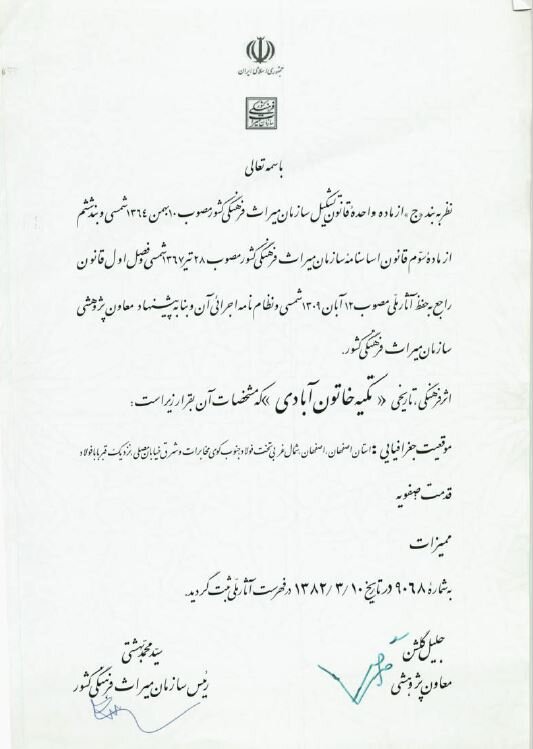 جمهوری اسلامی ایران
سازمان میراث فرهنگی کشور
باسمه تعالی
نظر به بند «ج» از ماده واحدهٔ قانون تشکیل سازمان میراث فرهنگی کشور مصوب ۱۰ بهمن ۱۳۶۴ شمسی و بند ششم
از مادهٔ سوّم قانون اساسنامهٔ سازمان میراث فرهنگی کشور مصوب ۲۸ تیر ۱۳۶۷ شمسی و فصل اول قانون
راجع به حفظ آثار ملّی مصوب ۱۲ آبان ۱۳۰۹ شمسی و نظام نامه اجرائی آن و بنا به پیشنهاد معاون پژوهشی
سازمان میراث فرهنگی کشور.
اثر فرهنگی، تاریخی «تکیه خاتون آبادی» که مشخصات آن بقرار زیر است:
موقعیت جغرافیایی: استان اصفهان، اصفهان، شمال غربی تخت فولاد جنوب کوی مخابرات و شرق خیابان مصلی، نزدیک قبر بابا فولاد
قدمت صفویه
ممیزات
به شمارهٔ ۹۰۶۸ در تاریخ ۱۳۸۲/۳/۱۰ در فهرست آثار ملّی ثبت گردید.
جلیل گلشن
معاون پژوهشی
سیّد محمّد بهشتی
رئیس سازمان میراث فرهنگی کشور